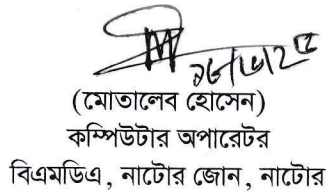 (মোতালেব হোসেন)
কম্পিউটার অপারেটর
বিএমডিএ, নাটোর জোন, নাটোর